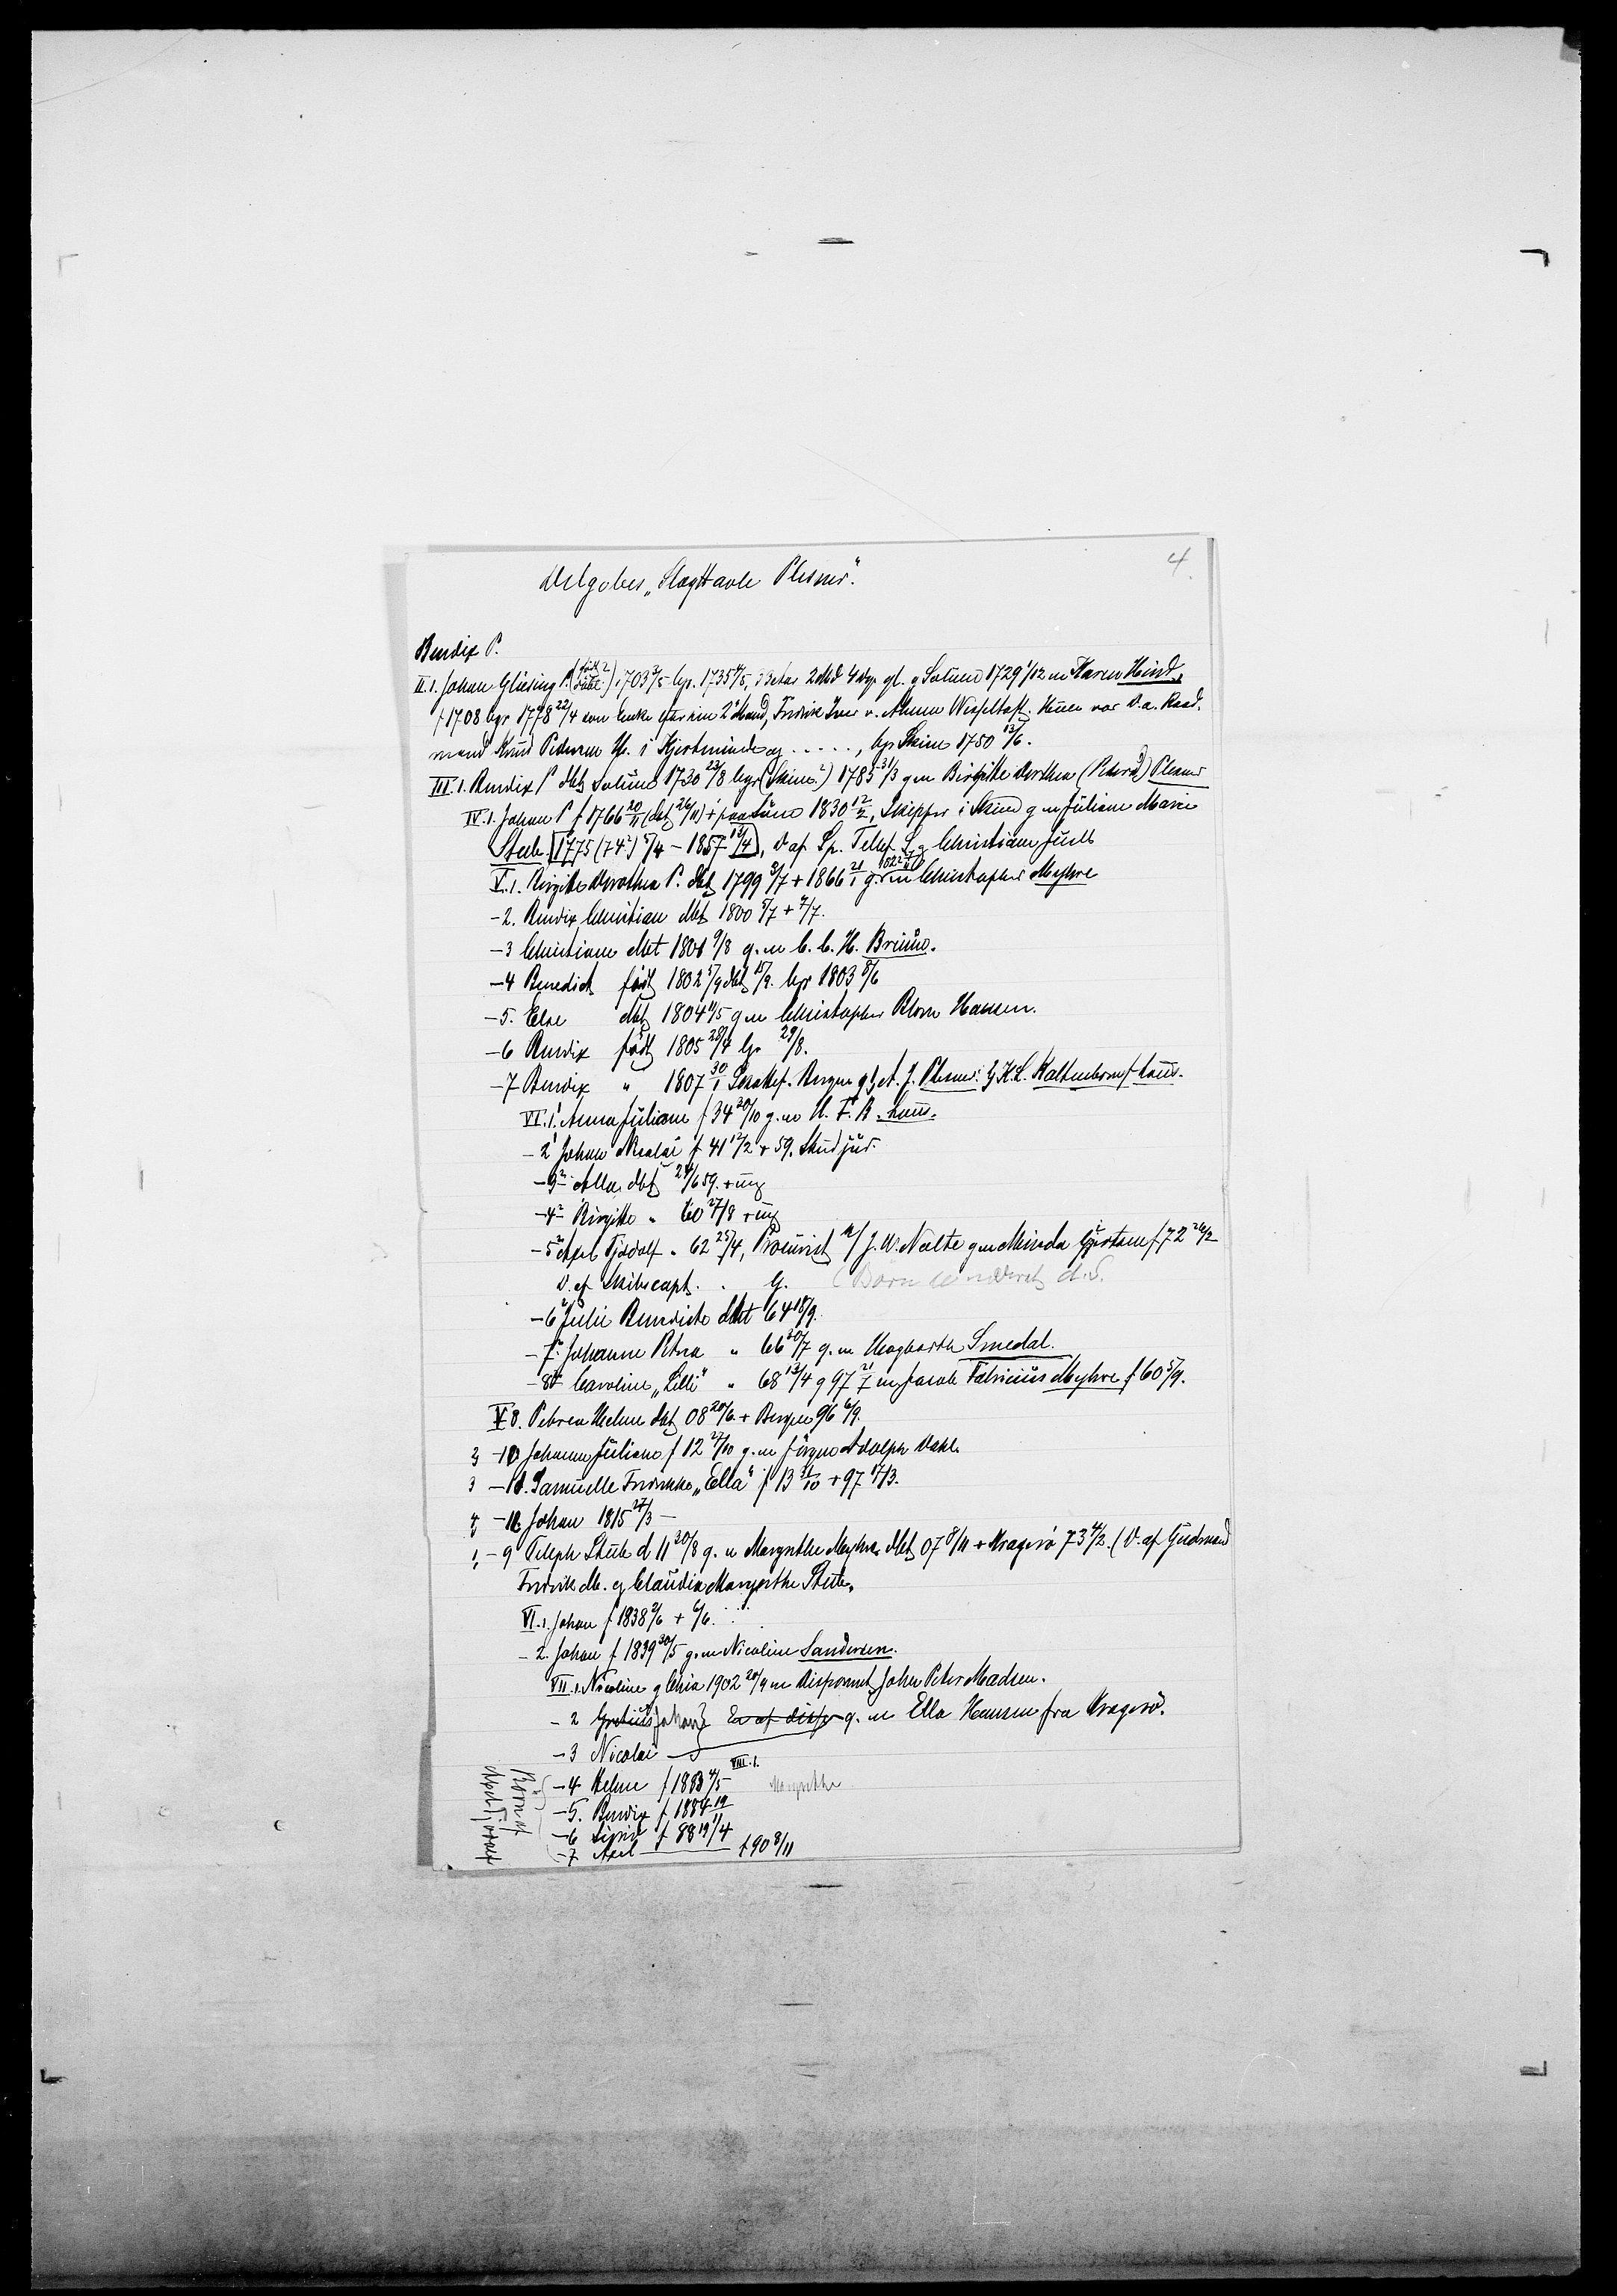 4.
Delgobes „Slægttavle Plesner".
Bendix P.
II. 1. Johan Glüsing P. 1703 2/5 bgr. 1735 gl. g Solum 1729 1/12 m Karen Hind,
f 1708 bgr 1778 22/4 som Enke efter sin 2' Mand, Fredrik Iver v. Ahnen Wesseltoft. Hunn var D. a. Raad-
mand Knud Pedersen H. i Kjerteminde og . . . . . , bgr Skien 1750 13/6.
III. 1. Bendix P dbt Solum 1730 23/8 bgr (Skien?) 1785 31/3 g m Birgitte Dorthea (Peters D) Plesner
IV. 1. Johan P f 1766 20/11 (dbt 26/11) + paa Lund 1830 12/2, Skipper i Skien g m Juliane Marie
Stub [1775 (74?) 5/4 – 1857 13/4], D af Sp. Teleph S. g Christiane Juell
V. 1. Birgitte Dorothea P. dbt 1799 3/7 + 1866 21/1 g. m Christopher Myhre
– 2. Bendix Christian dbt 1800 5/7 + 9/7.
– 3 Christiane dbt 1801 9/8 g. m C. C. H. Bruun.
– 4 Benedict født 1802 5/9 dbt 15/9. bgr 1803 8/6
– 5. Else dbt 1804 11/5 g m Christopher Blom Hansen.
– 6 Bendix født 1805 28/4 bgr 29/8.
– 7 Bendix " 1807 30/1 Bergen g 1) A. J. Plesner: 2) K. L. Kaltenborn f. Laun.
VI. 1.' Anna Juliane f 34 30/10 g. m H. F. B. Laun.
– 2' Johan Nicolai f 41 12/2 + 59. Stud jur.
– 3² Alla dbt 24/6 59. + ung
– 4² Birgitte " 60 27/8 + ung
– 5² Axel Tjodolf " 62 25/4, Prokurist i/ J. W. Nolte g m Minda Gjertsen f 72 26/2
D. af Skibscapt. . G. (Børn
– 6² Julie Bendicte dbt 64 18/9.
– 7² Johanne Petra " 66 20/7 g. m Hagbarth Smedal.
– 8² Caroline „Lilli" " 68 13/4 g 97 21/7 m Jacob Fabricius Myhre f 60 5/9.
V 8. Petrea Helene dbt 08 20/6. + Bergen 96 6/9.
2 – 10 Johanne Juliane f 12 27/10 g. m Jørgen Adolph Dahl.
3 – 11. Samuelle Fredrikke „Ella" f 13 31/10 + 97 17/3.
4 – 12 Johan 1815 27/3 –
1, – 9 Teleph Stub d 11 30/8 g. m Margrethe Myhre dbt 07 8/11 + Kragerø 73 4/2. (D. af Gudmand
Fredrik M. g Claudia Margrethe Stub.
VI. 1. Johan f 1838 2/6 + 6/6.
– 2. Johan f 1839 30/5 g. m Nicoline Sandersen.
VII. 1. Nicoline g Chria 1902 20/9 m Disponent John Peter Madsen.
– 2 Johan g. m Ella Hansen fra Kragerø.
– 3 Nicolai
VIII. 1.
– 4 Helene f 1883 4/5 Margrethe
– 5. Bendix f 1884 19/11
– 6 Sigrid f 88 19/4
– 7 Axel + 90 8/11
Børn af
Axel Tjodolf